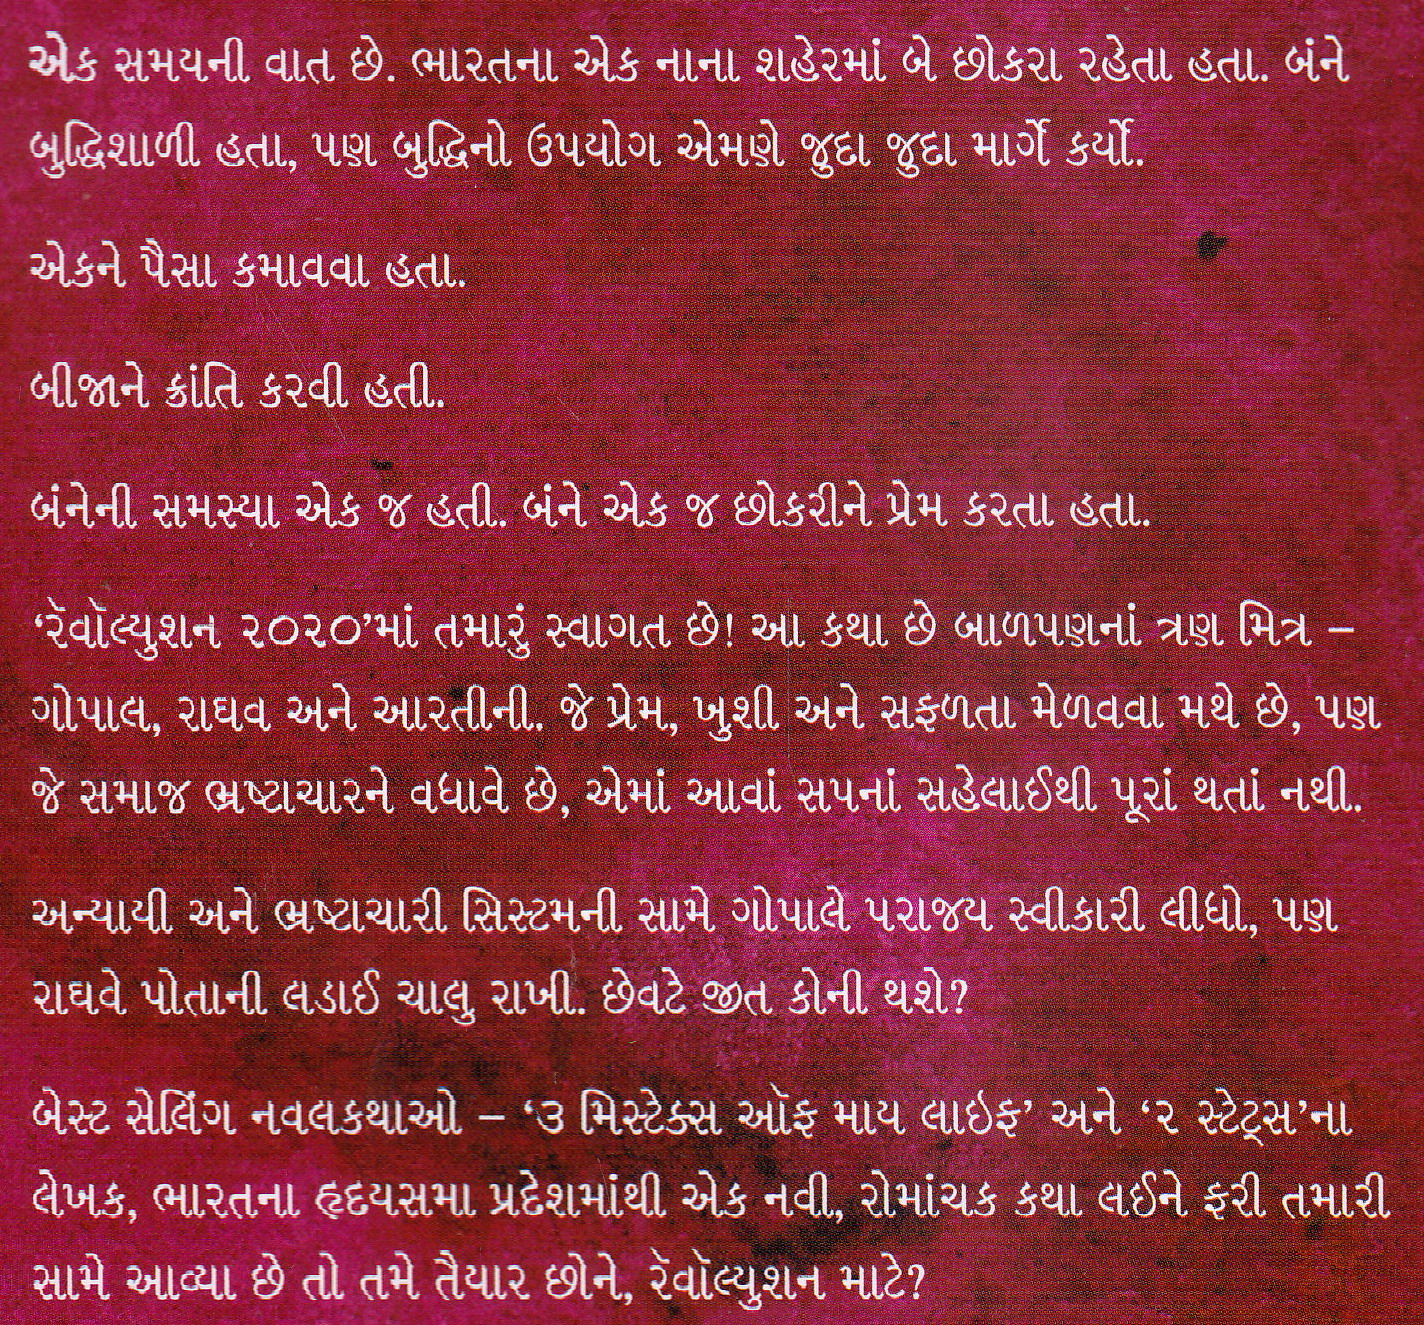 એક સમયની વાત છે. ભારતના એક નાના શહેરમાં બે છોકરા રહેતા હતા. બંને
બુદ્ધિશાળી હતા, પણ બુદ્ધિનો ઉપયોગ એમણે જુદા જુદા માર્ગે કર્યો.
એકને પૈસા કમાવવા હતા.
બીજાને ક્રાંતિ કરવી હતી.
બંનેની સમસ્યા એક જ હતી. બંને એક જ છોકરીને પ્રેમ કરતા હતા.
‘રૅવૉલ્યુશન ૨૦૨૦’માં તમારું સ્વાગત છે! આ કથા છે બાળપણનાં ત્રણ મિત્ર –
ગોપાલ, રાઘવ અને આરતીની. જે પ્રેમ, ખુશી અને સફળતા મેળવવા મથે છે, પણ
જે સમાજ ભ્રષ્ટાચારને વધાવે છે, એમાં આવાં સપનાં સહેલાઈથી પૂરાં થતાં નથી.
અન્યાયી અને ભ્રષ્ટાચારી સિસ્ટમની સામે ગોપાલે પરાજય સ્વીકારી લીધો, પણ
રાઘવે પોતાની લડાઈ ચાલુ રાખી. છેવટે જીત કોની થશે?
બેસ્ટ સેલિંગ નવલકથાઓ – ‘૩ મિસ્ટેક્સ ઑફ માય લાઇફ’ અને ‘૨ સ્ટેટ્સ’ના
લેખક, ભારતના હૃદયસમા પ્રદેશમાંથી એક નવી, રોમાંચક કથા લઈને ફરી તમારી
સામે આવ્યા છે તો તમે તૈયાર છોને, રૅવૉલ્યુશન માટે?